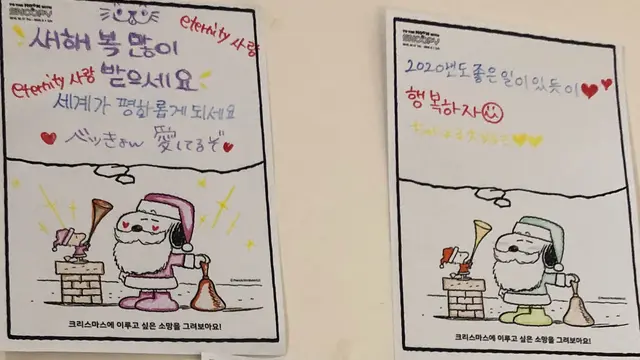 SNOOPY
eternity 사랑
새해 복 많이
받으세요
eternity 사랑
세계가 평화롭게 되세요
ベッきょん 愛してるぞ
크리스마스에 이루고 싶은 소망을 그려보아요!
SNOOPY
2020년도 좋은 일이 있듯이
행복하자
크리스마스에 이루고 싶은 소망을 그려보아요!